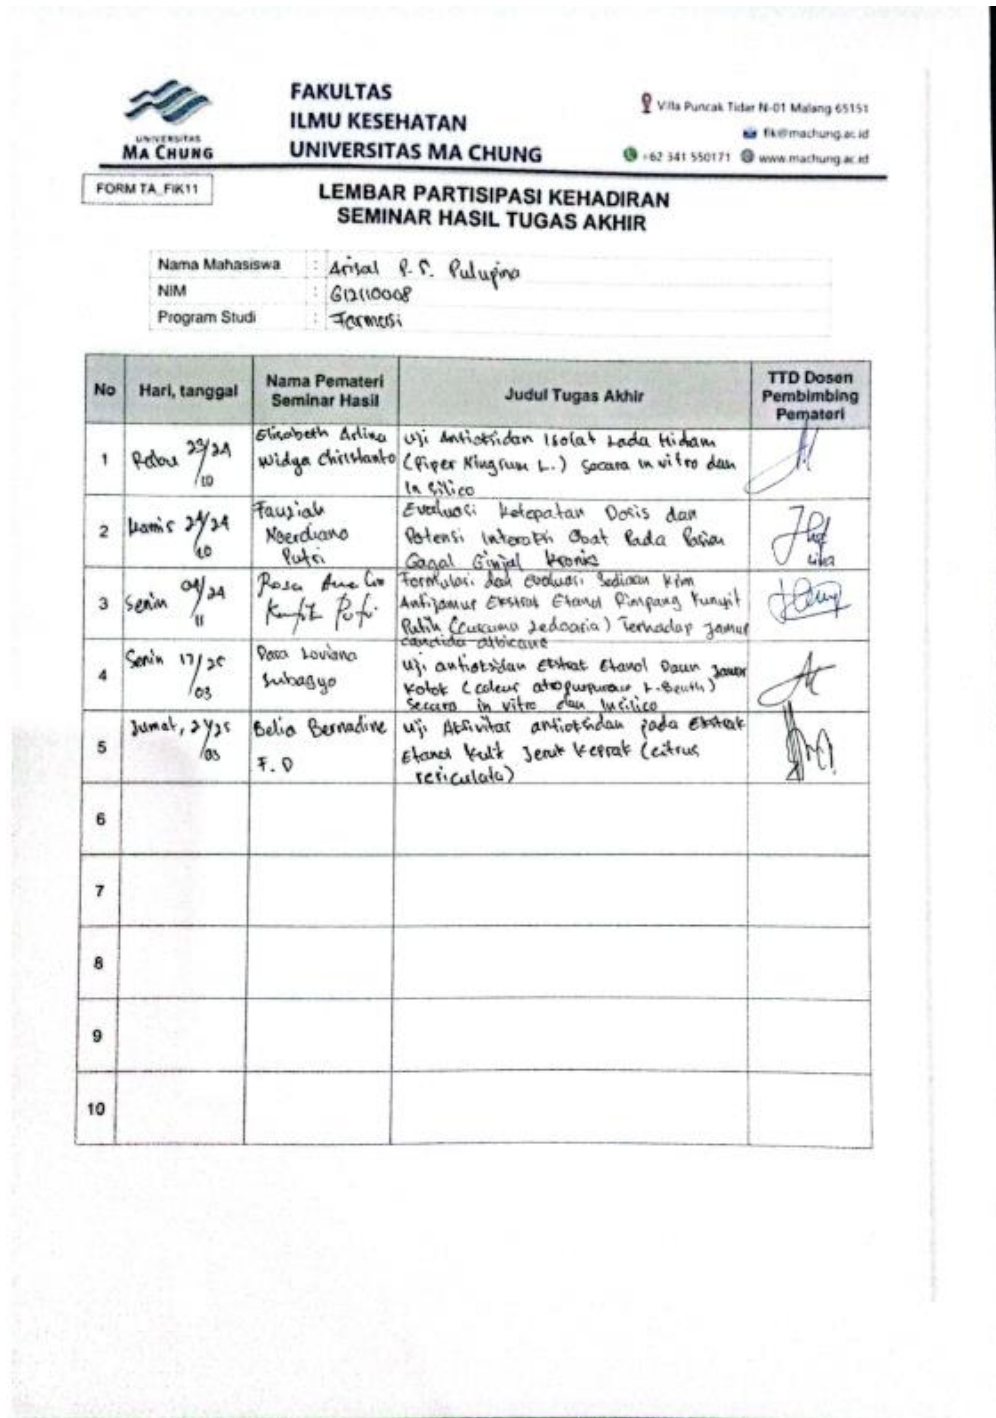 UNIVERSITAS
MA CHUNG
FAKULTAS
ILMU KESEHATAN
UNIVERSITAS MA CHUNG
Villa Puncak Tidar N-01 Malang 65151
fik@machung.ac.id
+62 341 550171 www.machung.ac.id
FORM TA_FIK11
LEMBAR PARTISIPASI KEHADIRAN
SEMINAR HASIL TUGAS AKHIR
Nama Mahasiswa : Arisal P. S. Pulupina
NIM : 612110008
Program Studi : Farmasi
No
Hari, tanggal
Nama Pemateri
Seminar Hasil
Judul Tugas Akhir
TTD Dosen
Pembimbing
Pemateri
1
Rabu 23/24
/10
Elisabeth Arlina
Widya Christanto
Uji Antioksidan Isolat Lada Hidam
(Piper Ningrum L.) Secara in vitro dan
In Silico
2
Kamis 24/24
/10
Fauziah
Noerdiano
Putri
Evaluasi Ketepatan Dosis dan
Potensi Interaksi Obat Pada Pasien
Gagal Ginjal Kronis
3
Senin 04/24
11
Rosa
Formulasi dan evaluasi Sediaan Krim
Antijamur Ekstrak Etanol Rimpang Kunyit
Putih (Curcuma Zedoaria) Terhadap Jamur
candida albicans
4
Senin 17/25
/03
Loviana
Subagyo
Uji antioksidan Ekstrak Etanol Daun Jawer
Kotok (coleus atropurpureus L. Benth)
Secara in vitro dan Insilico
5
Jumat, 21/25
/03
Belia Bernadine
F. D
Uji Aktivitas antioksidan pada Ekstrak
Etanol Kulit Jeruk Keprak (citrus
reticulata)
6
7
8
9
10